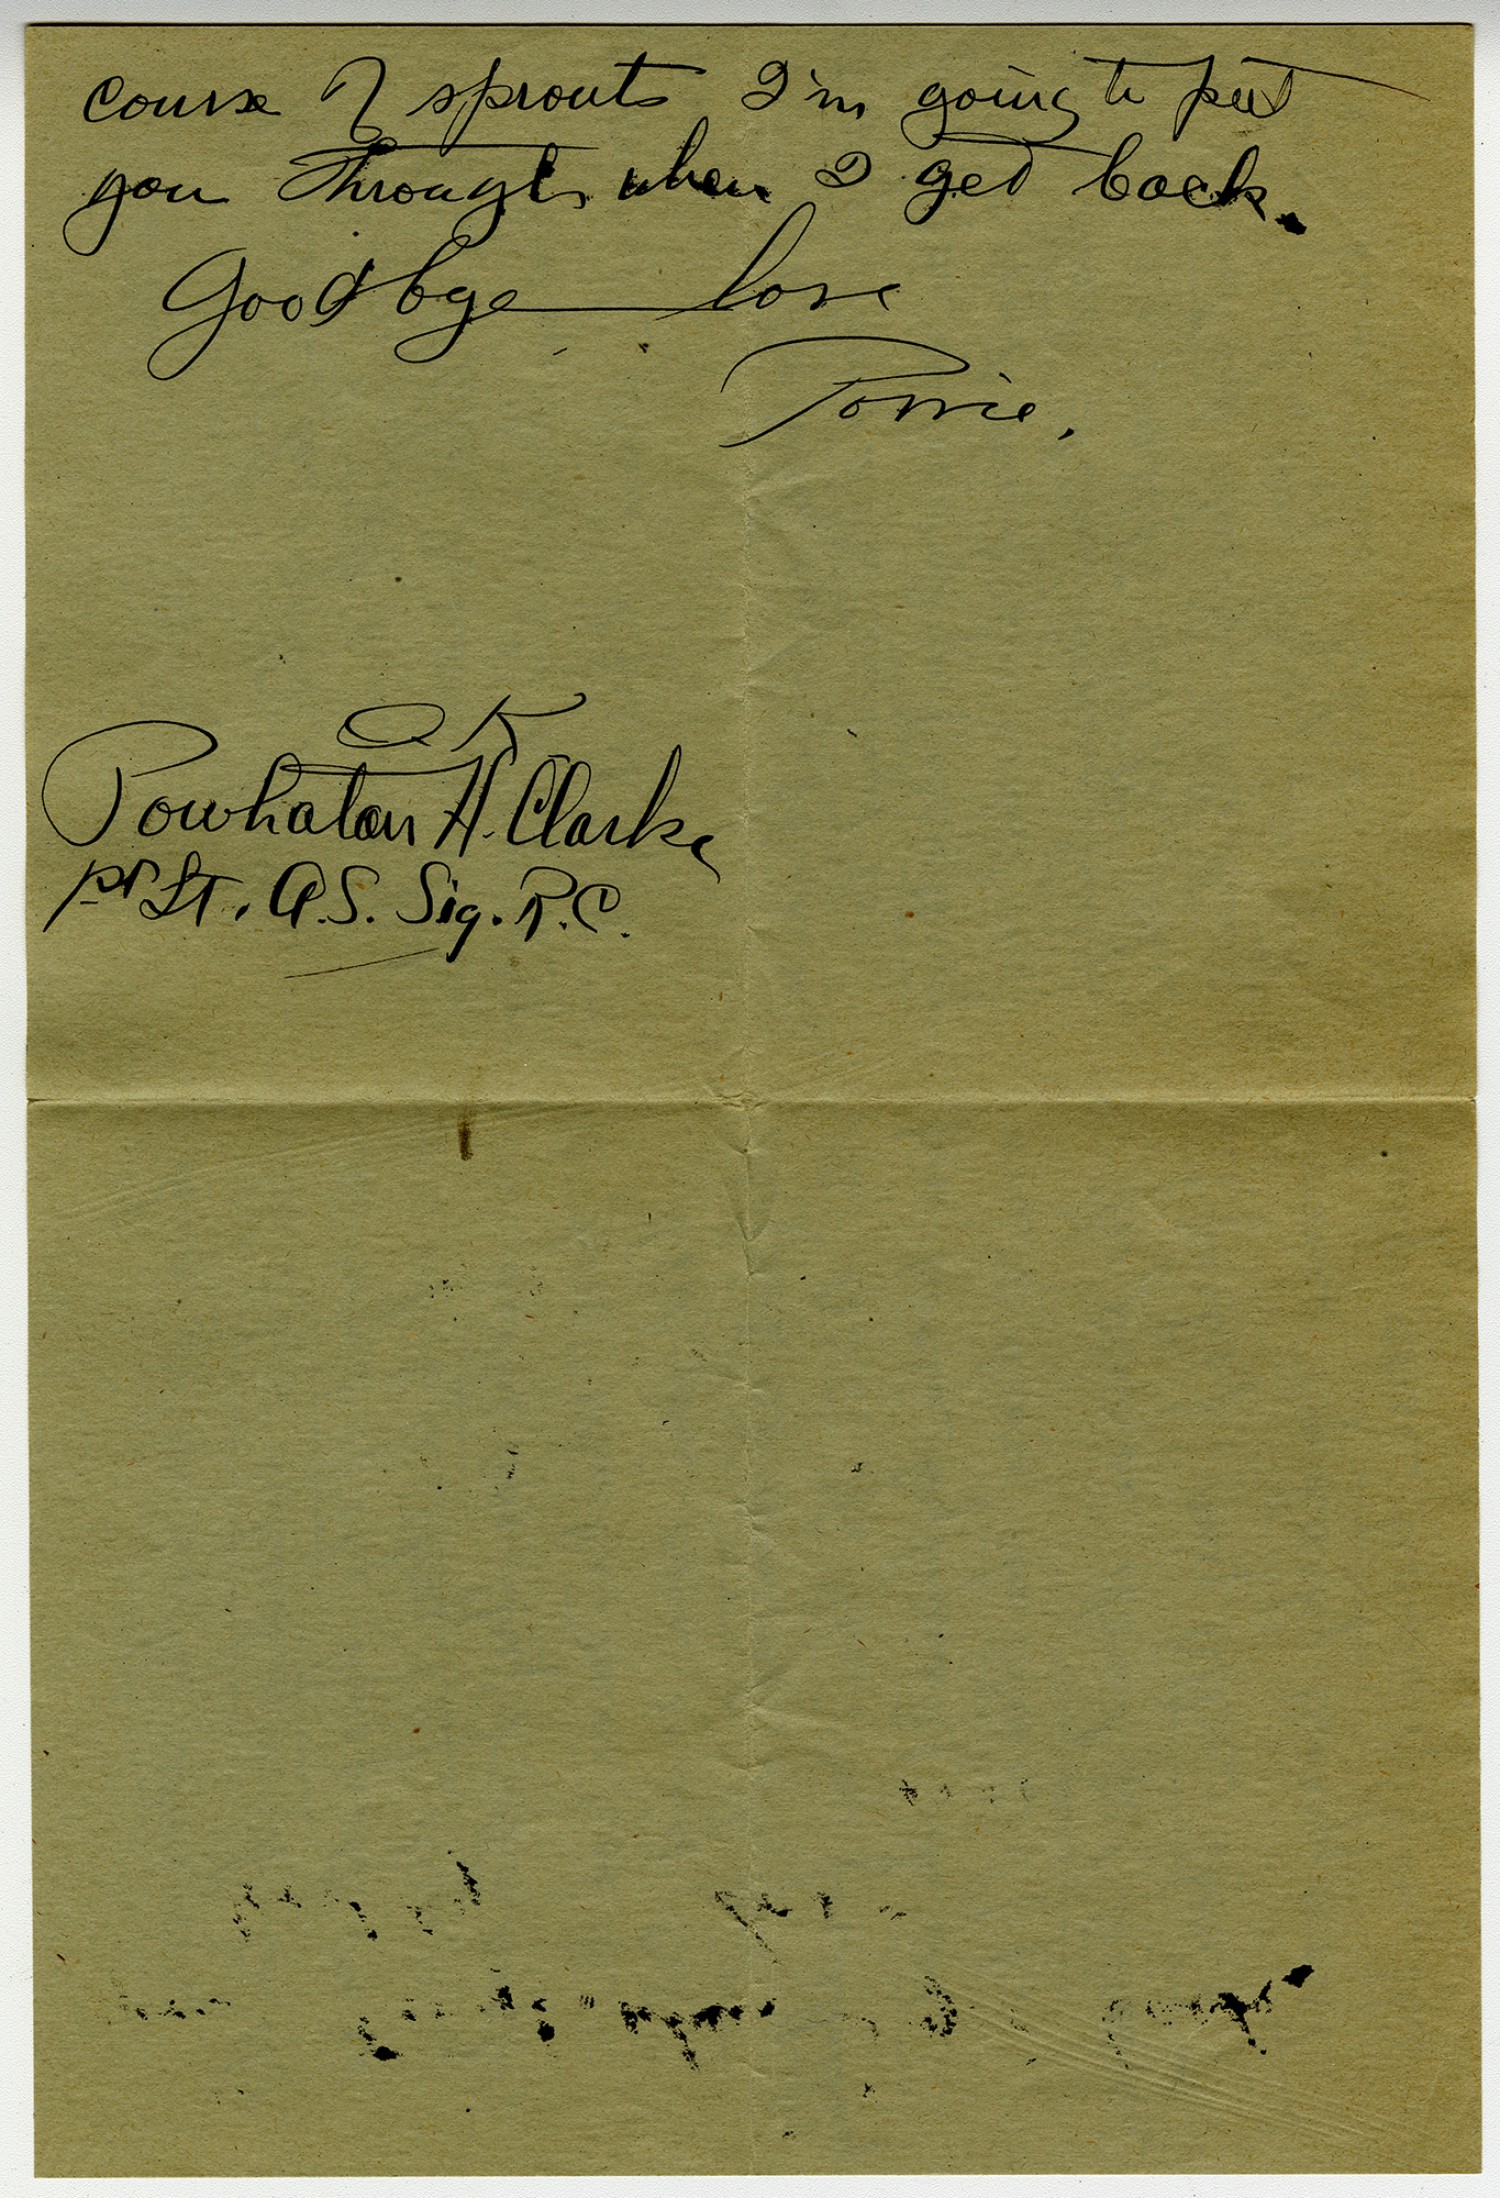 course of sprouts I'm going to put
you through when I get back.
Goodbye — love
Powie.
OK
Powhatan H. Clarke
1st Lt. A.S. Sig. R.C.